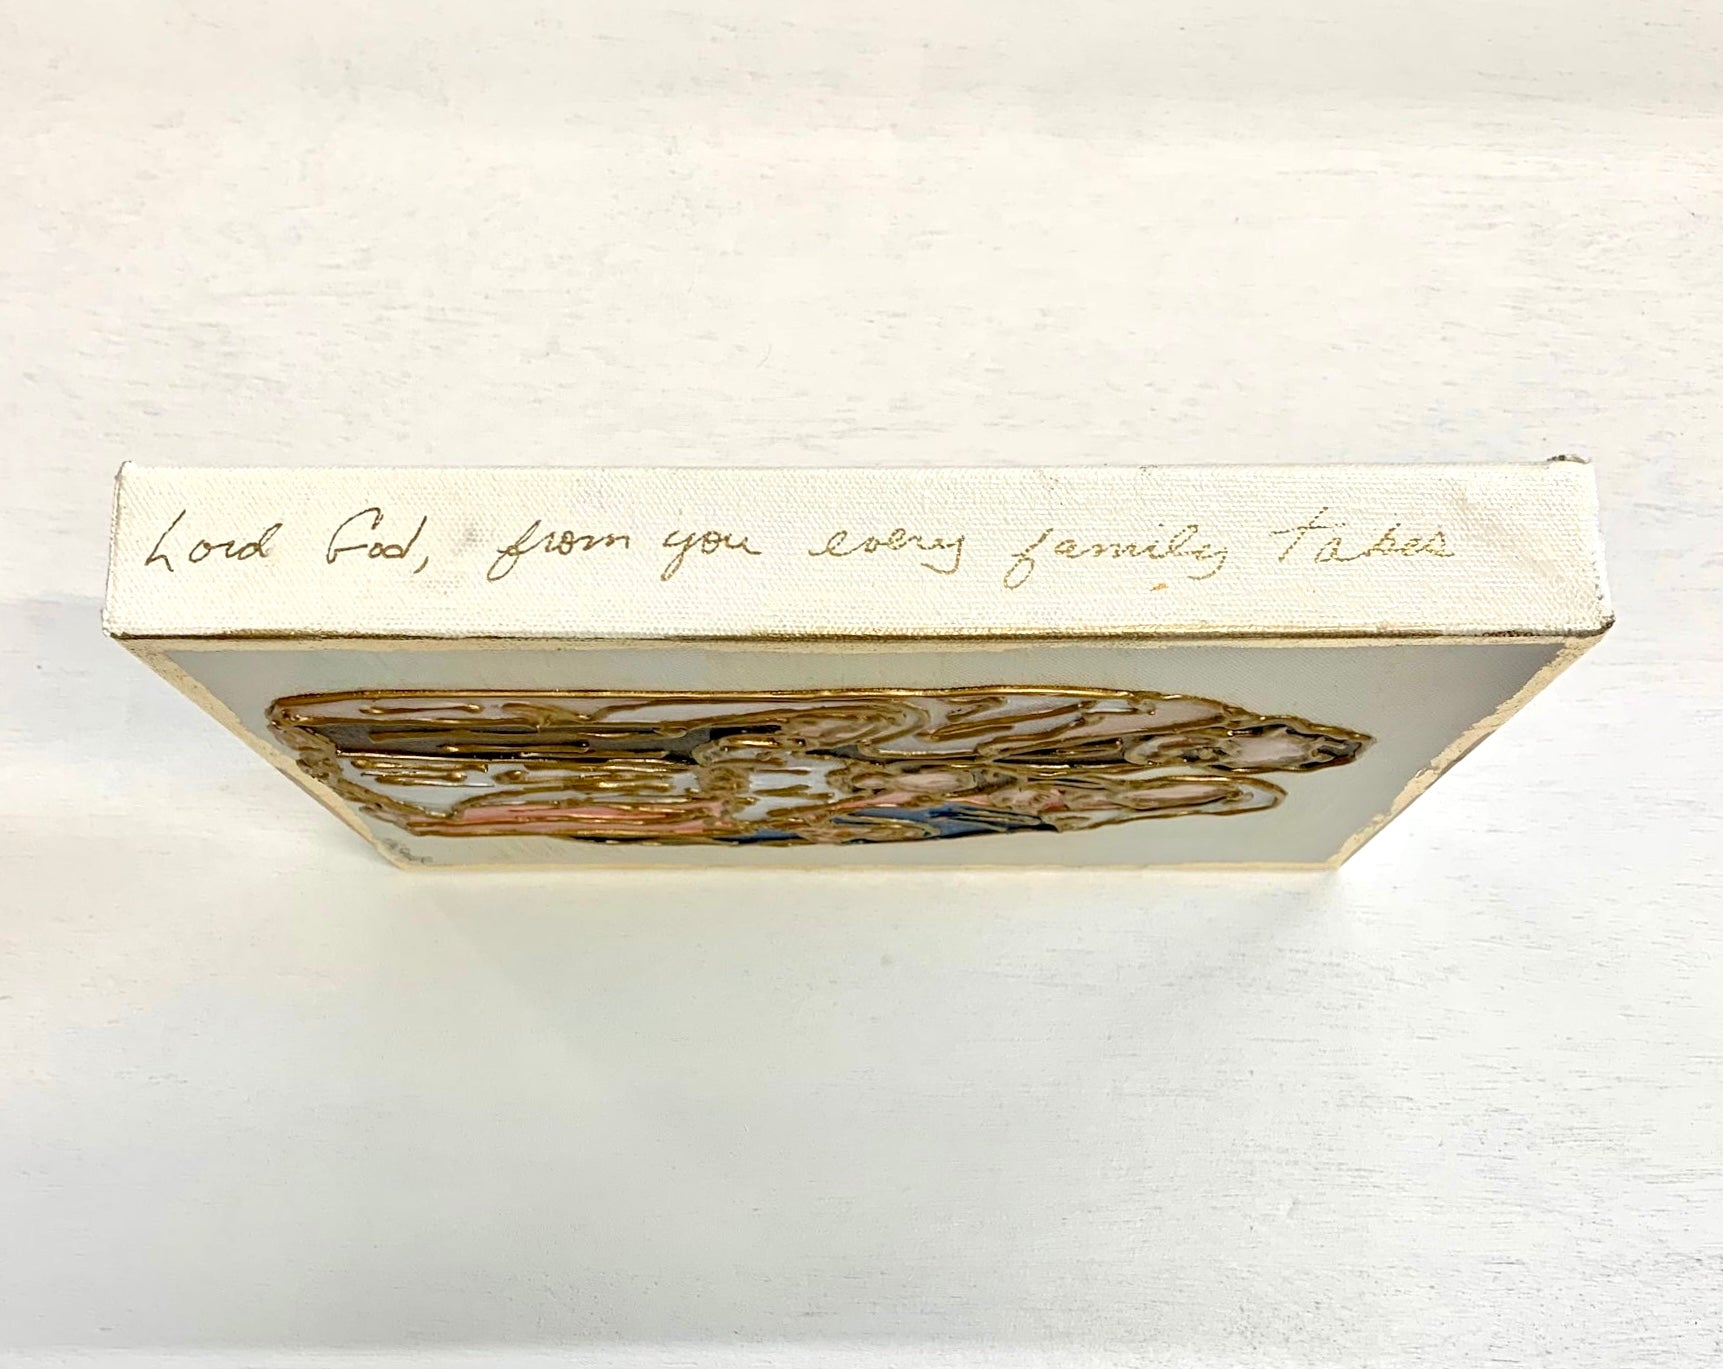 Lord God, from you every family takes